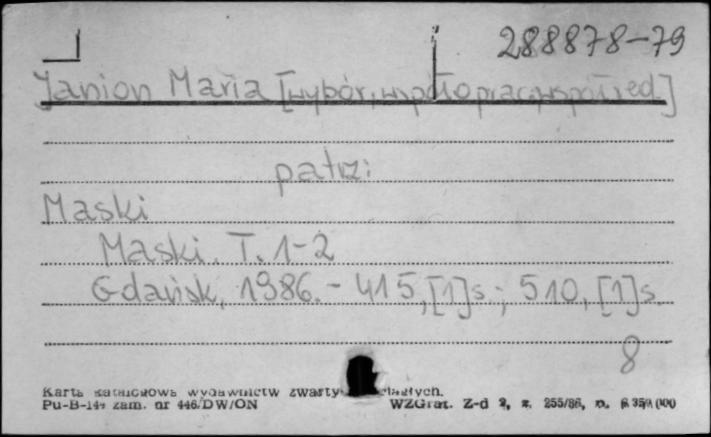 288878-79
Janion Maria [wybór, współoprac., współred.]
patrz:
Maski
Maski. T. 1-2
Gdańsk, 1986. - 415, [1] s. ; 510, [1] s.
8
Karta katalogowa wydawnictw zwartych
Pu-B-144 zam. nr 446/DW/ON WZGraf. Z-d 2, z. 255/86, n.